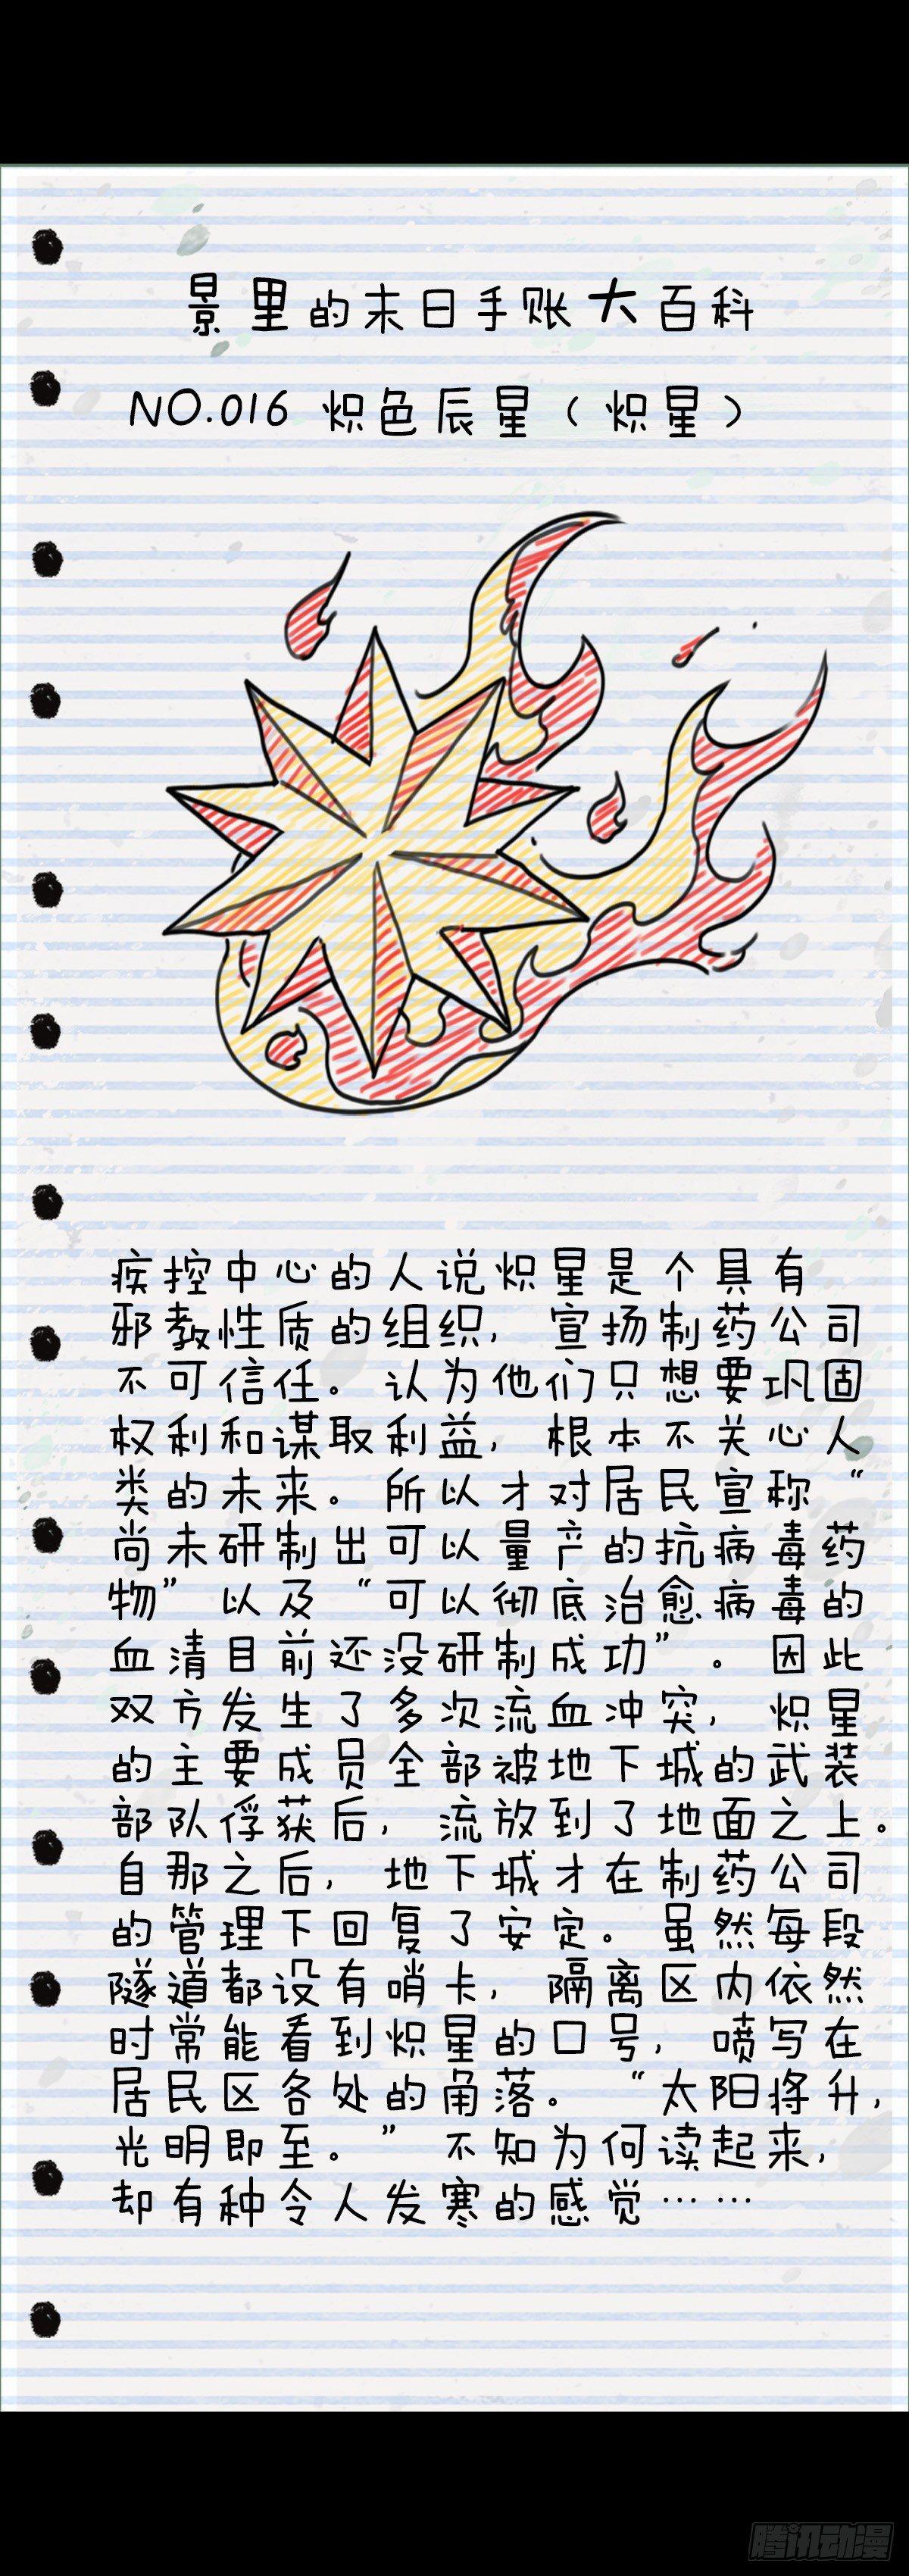 景里的末日手账大百科
NO.016 炽色辰星（炽星）
疾控中心的人说炽星是个具有
邪教性质的组织，宣扬制药公司
不可信任。认为他们只想要巩固
权利和谋取利益，根本不关心人
类的未来。所以才对居民宣称“
尚未研制出可以量产的抗病毒药
物”以及“可以彻底治愈病毒的
血清目前还没研制成功”。因此
双方发生了多次流血冲突，炽星
的主要成员全部被地下城的武装
部队俘获后，流放到了地面之上。
自那之后，地下城才在制药公司
的管理下回复了安定。虽然每段
隧道都设有哨卡，隔离区内依然
时常能看到炽星的口号，喷写在
居民区各处的角落。“太阳将升，
光明即至。”不知为何读起来，
却有种令人发寒的感觉……
腾讯动漫